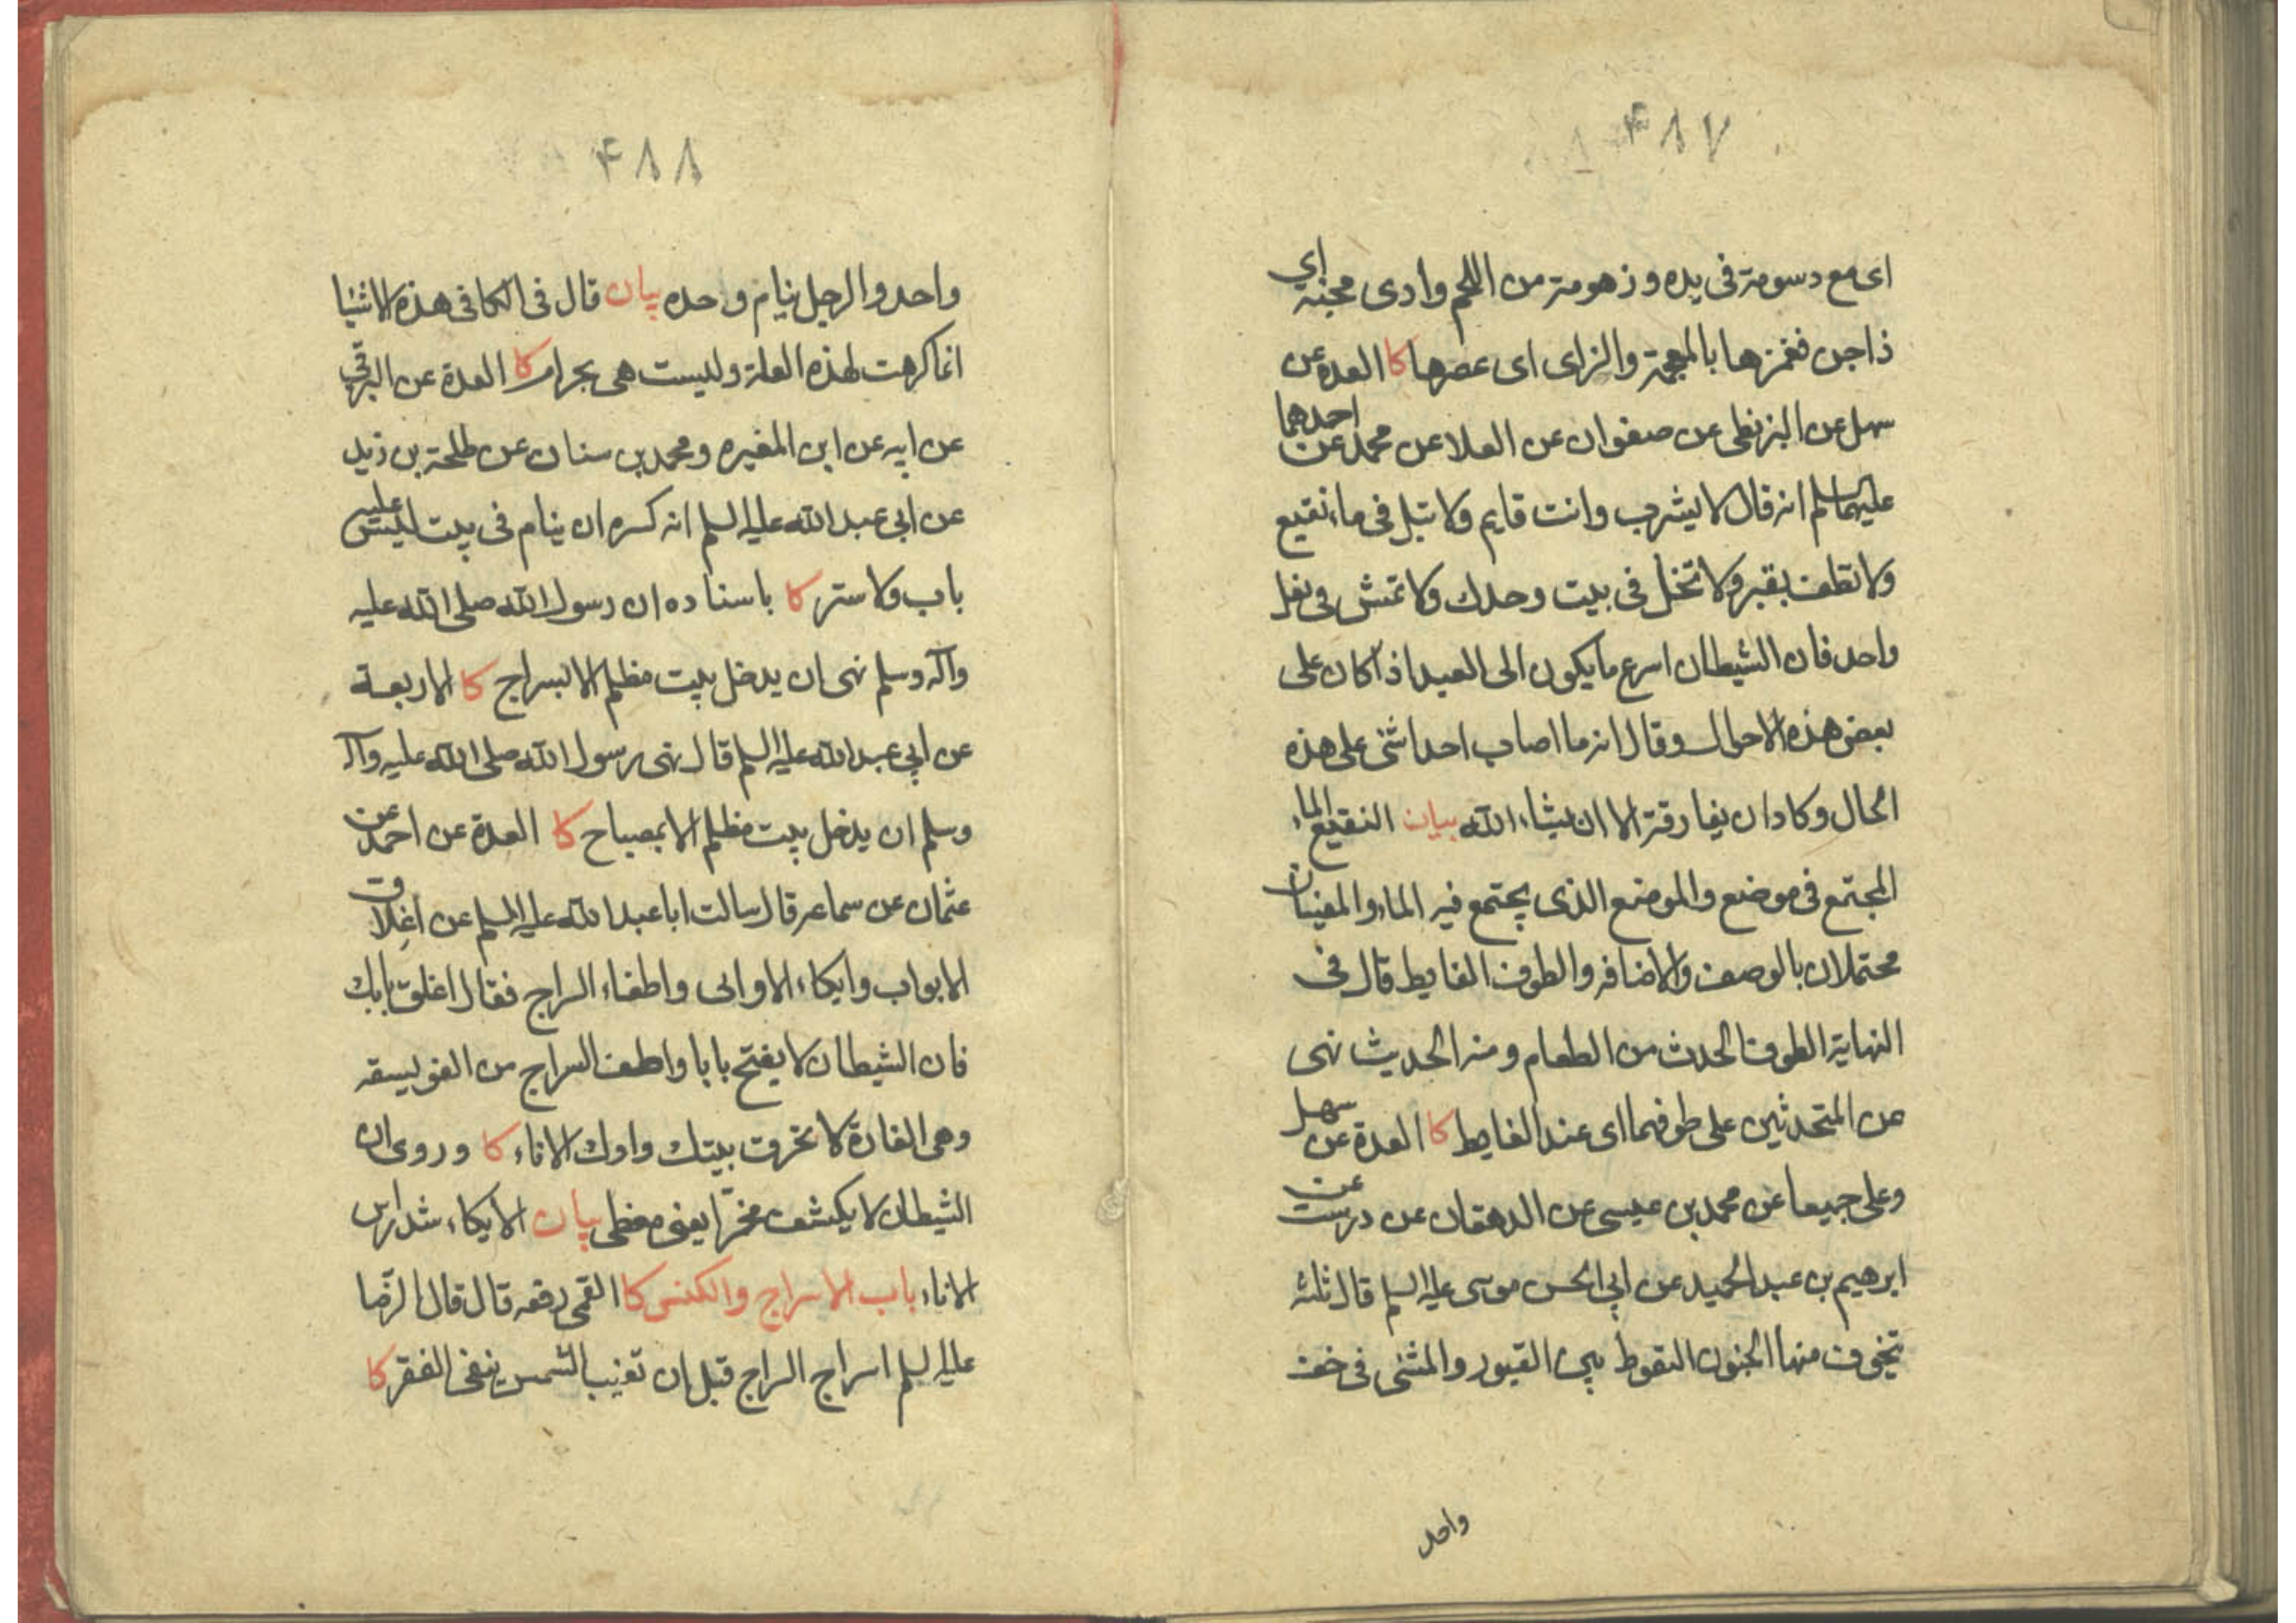 ۴۸۷
ای مع دسومة فی یده و زهومة من اللحم وادی مجنة ای
ذا جن فغمزها بالمعجمة والزای ای عصرها کا العدة عن
سهل عن البزنطی عن صفوان عن العلا عن محمد عن احدهما
علیهما السلم انه قال لا یشرب وانت قایم ولا تبل فی ماء نقیع
ولا تطف بقبر ولا تخل فی بیت وحدک ولا تمش فی نعل
واحد فان الشیطان اسرع ما یکون الی العبد اذا کان علی
بعض هذه الاحوال وقال انه ما اصاب احدا شئ علی هذه
الحال وکاد ان یفارقة الا ان یشاء الله بیان النقیع الماء
المجتمع فی موضع والموضع الذی یجتمع فیه الماء والمعنیان
محتملان بالوصف والاضافه والطوف الغایط قال فی
النهایة الطوف الحدث من الطعام ومنه الحدیث نهی
عن المتحدثین علی طوفهما ای عند الغایط کا العدة عن سهل
وعلی جمیعا عن محمد بن عیسی عن الدهقان عن درست عن
ابرهیم بن عبد الحمید عن ابی الحسن موسی علیه السلم قال ثلثه
تخوف منها الجنون التغوط بین القبور والمشی فی خف
واحد
۴۸۸
واحد والرجل ینام وحده بیان قال فی الکافی هذه الاشیا
انما کرهت لهذه العلة ولیست هی بحرام کا العدة عن البرقی
عن ابیه عن ابن المغیره ومحمد بن سنان عن طلحة بن زید
عن ابی عبد الله علیه السلم انه کره ان ینام فی بیت لیس علیه
باب ولا ستر کا باسناده ان رسول الله صلی الله علیه
وآله وسلم نهی ان یدخل بیت مظلم الا بسراج کا الاربعة
عن ابی عبد الله علیه السلم قال نهی رسول الله صلی الله علیه وآله
وسلم ان یدخل بیت مظلم الا بمصباح کا العدة عن احمد عن
عثمان عن سماعه قال سالت ابا عبد الله علیه السلم عن اغلاق
الابواب وایکاء الاوانی واطفاء السراج فقال اغلق بابک
فان الشیطان لا یفتح بابا واطف السراج من الفویسقه
وهی الفارة لا تحرق بیتک واوک الاناء کا وروی ان
الشیطان لا یکشف مخمّرا یعنی مغطی بیان الایکاء شد راس
الاناء باب الاسراج والکنس کا القمی رفعه قال قال الرّضا
علیه السلم اسراج السراج قبل ان تغیب الشمس ینفی الفقر کا